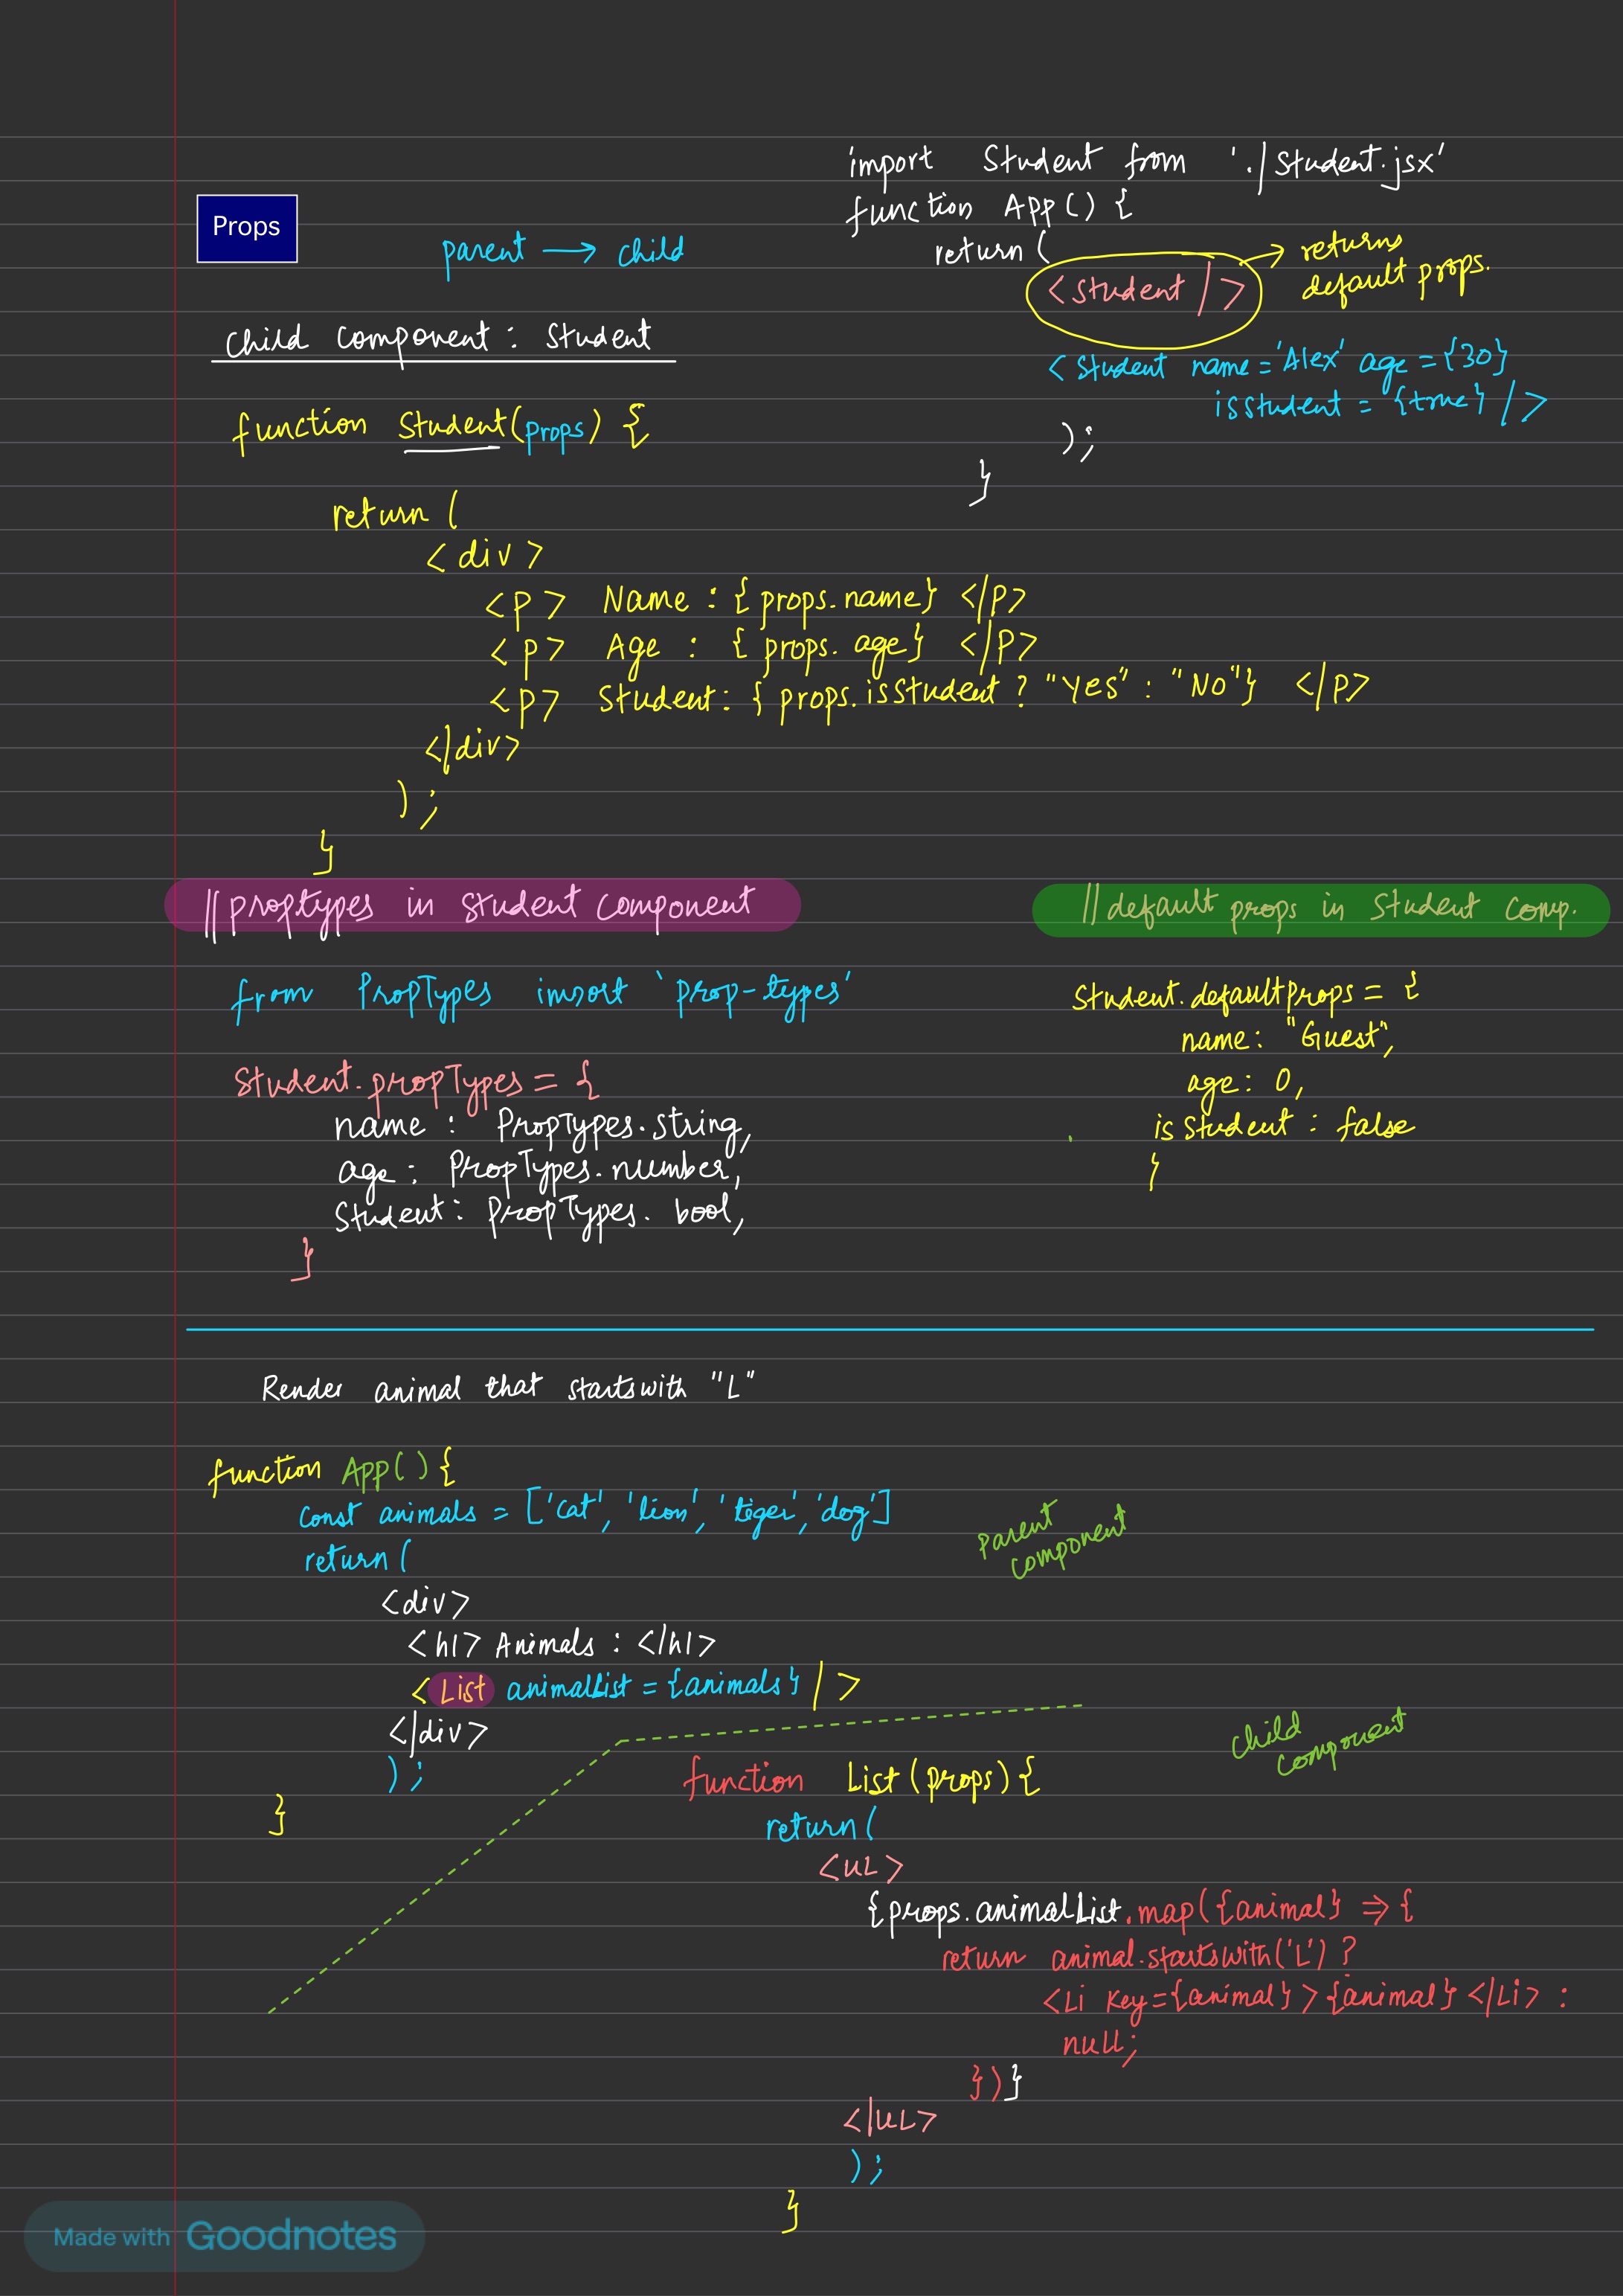 Props
parent → child
child component : Student
function Student(props) {
return (
<div>
<p> Name : { props.name} </p>
<p> Age : { props. age} </p>
<p> Student: { props.isStudent ? "Yes" : "No"} </p>
</div>
) ;
}
import Student from './Student.jsx'
function App() {
return (
<student />
→ returns
default props.
<student name='Alex' age={30}
isstudent = {true} />
);
}
|| proptypes in student component
from PropTypes import 'prop-types'
Student.propTypes = {
name : PropTypes.string,
age : PropTypes.number,
Student : PropTypes. bool,
}
|| default props in Student comp.
Student.defaultProps = {
name: "Guest",
age: 0,
isStudent : false
}
Render animal that startswith "L"
function App() {
const animals = ['cat', 'lion', 'tiger', 'dog']
return (
<div>
<h1> Animals : </h1>
<List animalList = {animals} />
</div>
);
}
parent
component
child
component
function List (props) {
return (
<ul>
{props.animalList.map({animal} => {
return animal.startswith('L') ?
<Li key={animal}>{animal}</Li> :
null;
})}
</ul>
);
}
Made with Goodnotes